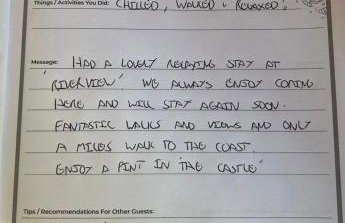 Things / Activities You Did: CHILLED, WALKED & RELAXED!
Message: HAD A LOVELY RELAXING STAY AT
'RIVERVIEW' WE ALWAYS ENJOY COMING
HERE AND WILL STAY AGAIN SOON.
FANTASTIC WALKS AND VIEWS AND ONLY
A MILES WALK TO THE COAST.
ENJOY A PINT IN 'THE CASTLE'
Tips / Recommendations For Other Guests: